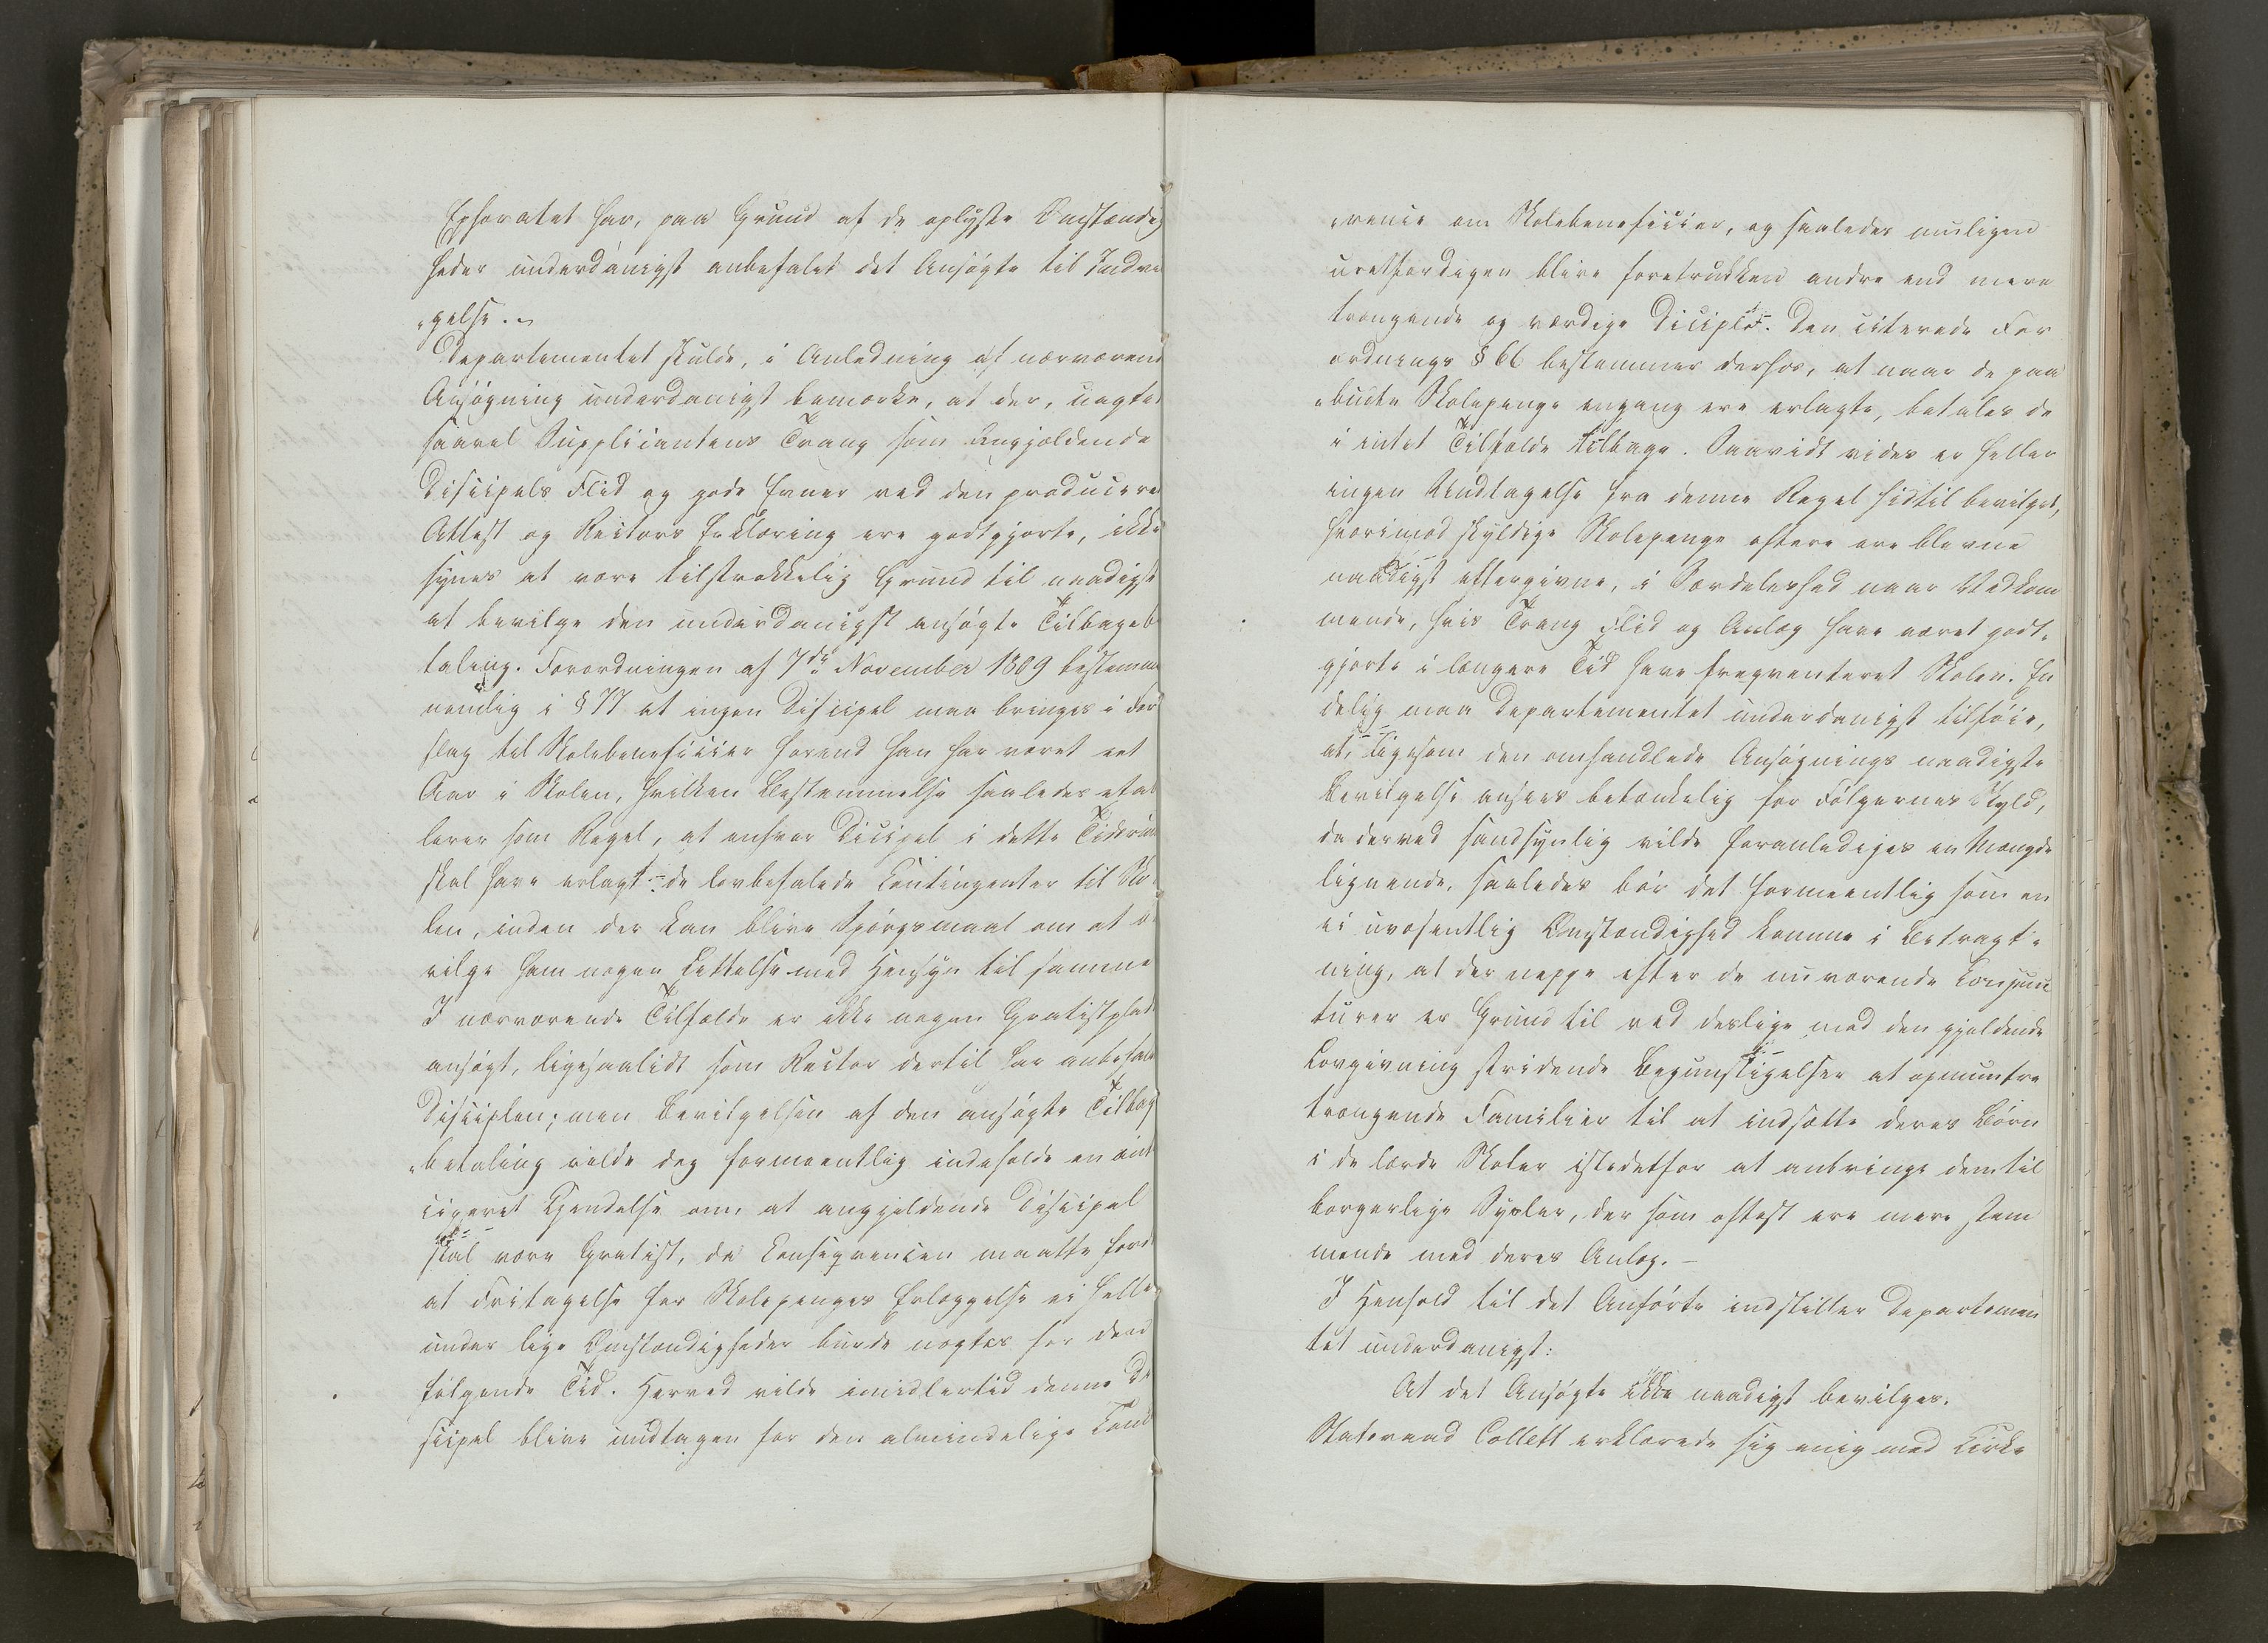 Ephoratet har, paa Grund af de oplyste Omstændig
heder underdanigst anbefalet det Ansøgte til Indvil
„gelse.
Departementet skulde, i Anledning af nærværende
Ansøgning underdanigst bemærke, at der, uagtet
saavel Supplicantens Trang som Angjældende
Discipels Flid og gode Evner ved den producerede
Attest og Rectors Erklæring ere godtgjorte, ikke
synes at være tilstrækkelig Grund til naadigst
at bevilge den underdanigst ansøgte Tilbagebe
taling. Forordningen af 7de November 1809 bestemmer
nemlig i § 77 at ingen Discipel maa bringes i For
slag til Skolebeneficier førend han har været eet
Aar i Skolen, hvilken Bestemmelse saaledes etab
lerer som Regel, at enhver Dicipel i dette Tidsrum
skal have erlagt de lovbefalede Contingenter til Sko
len, inden der kan blive Spørgsmaal om at be
vilge ham nogen Lettelse med Hensyn til samme
I nærværende Tilfælde er ikke nogen Gratistplads
ansøgt, ligesaalidt som Rector dertil har anbefalet
Disciplen; men Bevilgelsen af den ansøgte Tilbage
„betaling vilde dog formeentlig indeholde en anti
ciperet Kjendelse om, at angjeldende Discipel
skal være Gratist, da Consequencen maatte fordre
at Fritagelse for Skolepenges Erlæggelse ei heller
under lige Omstændigheder burde nægtes for den
følgende Tid. Herved vilde imidlertid denne Di
scipel blive undtagen for den almindelige Concur
„rence om Skolebeneficier, og saaledes muligen
uretfærdigen blive foretrukken andre end mere
trængende og værdige Diciple. Den citerede For
ordnings § 66 bestemmer derhos, at naar de paa
„budne Skolepenge engang ere erlagte, betales de
i intet Tilfælde tilbage. Saavidt vides er heller
ingen Undtagelse fra denne Regel hidtil bevilget,
hvorimod skyldige Skolepenge oftere ere blevne
naadigst eftergivne, i Særdeleshed naar Vedkom
mende, hvis Trang Flid og Anlæg have været godt„
gjorte i længere Tid have frequenteret Skolen. En
delig maa Departementet underdanigst tilføie,
at, ligesom den omhandlede Ansøgnings naadigste
Bevilgelse ansees betænkelig for Følgernes Skyld,
da derved sandsynlig vilde foranlediges en Mængde
lignende, saaledes bør det formeentlig som en
ei uvæsentlig Omstændighed komme i Betragt„
ning, at der neppe efter de nuværende Conjunc
turer er Grund til ved deslige mod den gjeldende
Lovgivning stridende Begunstigelser at opmuntre
trængende Familier til at indsætte deres Børn
i de lærde Skoler istedetfor at anbringe dem til
borgerlige Sysler, der som oftest ere mere stem
mende med deres Anlæg. –
I Henhold til det Anførte indstiller Departemen
tet underdanigst:
At det Ansøgte ikke naadigst bevilges.
Statsraad Collett erklærede sig enig med Kirke